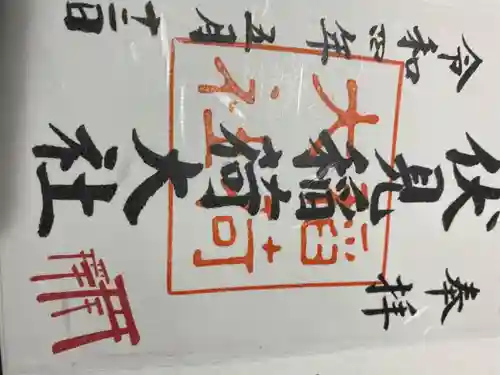 奉拝
伏見稲荷大社
令和四年五月十二日
稲荷
大社